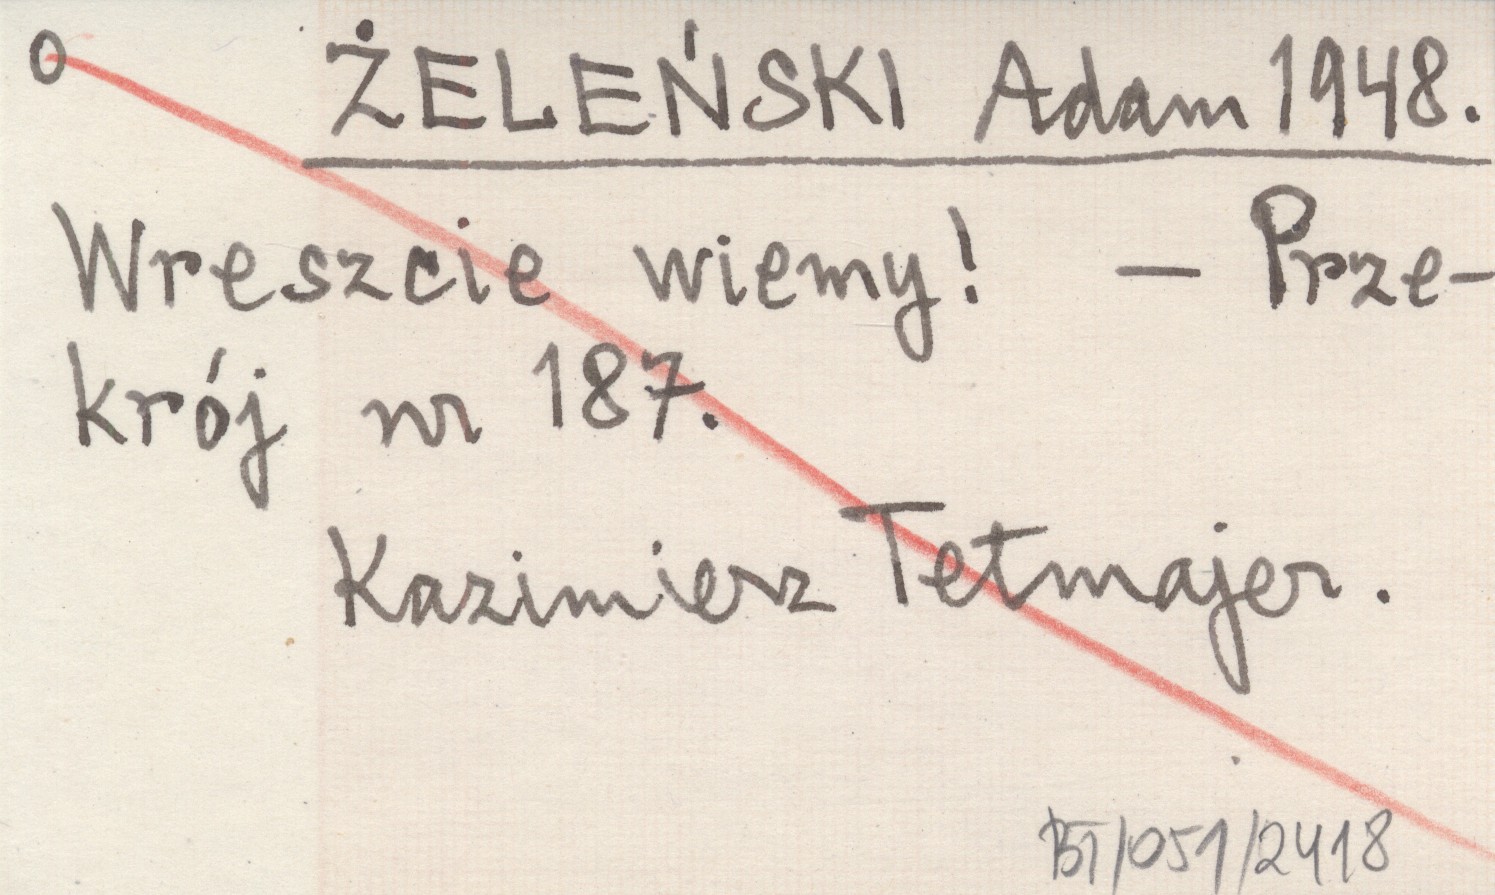 O ŻELEŃSKI Adam 1948.
Wreszcie wiemy! — Prze-
krój nr 187.
Kazimierz Tetmajer.
BT/051/2418